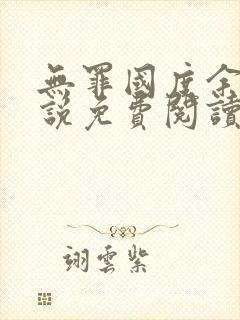 無罪國度余
說免費閱讀
翊雲紫